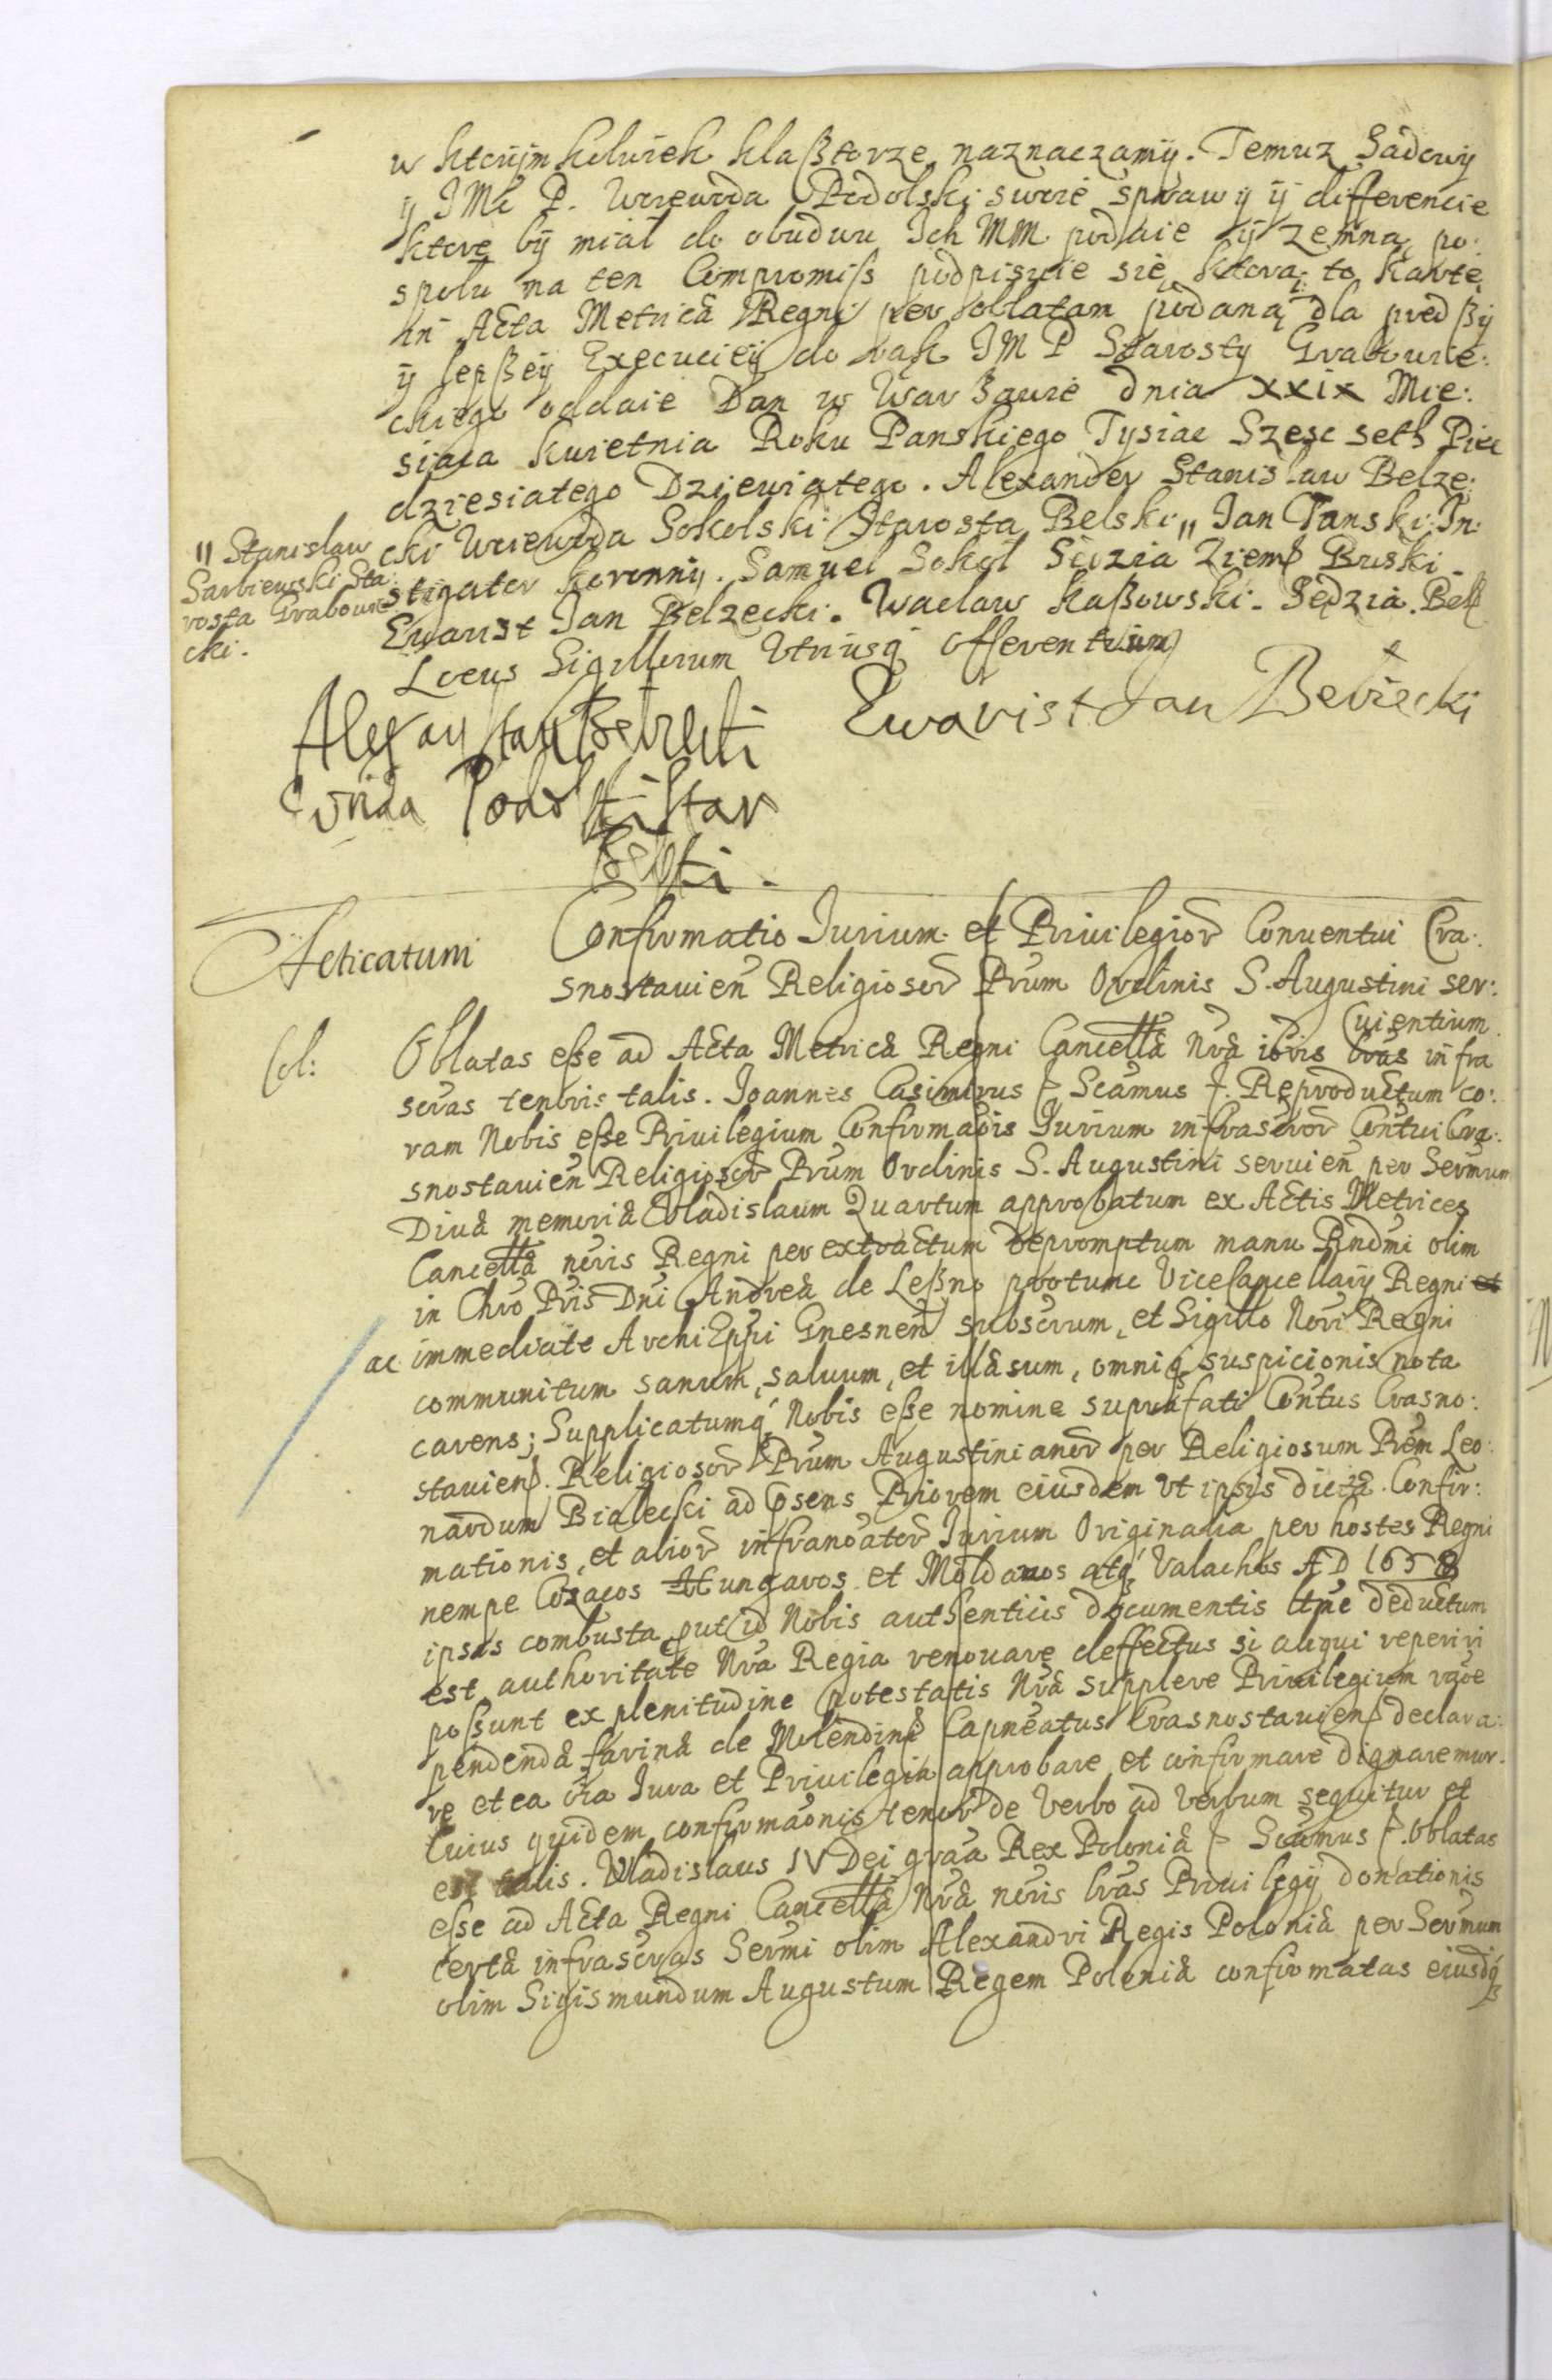 w ktorymkolwiek klaßtorze naznaczamÿ. Temuz Sądowÿ
ÿ JMć P. Woiewoda Podolski swoie sprawÿ ÿ differencie
ktore bÿ miał do obudwu Ich MM podaie ÿ zemną po:
społu na ten Compromiss podpisuie się, ktorą to kartę
in Acta Metricæ Regni per oblatam podaną dla prędßÿ
ÿ lepßeÿ Execucieÿ do rąk JM P Starosty Grabowie:
ckiego oddaie Dan w Warßawie dnia xxix Mie:
siąca kwietnia Roku Panskiego Tysiac Szesc seth Piec
dziesiatego Dziewiatego. Alexander Stanislaw Belze:
cki Woiewoda Podolski Starosta Belski " Jan Tanski In:
stigator koronnÿ. Samuel Sokol Sędzia Ziems Buski.
Ewarist Jan Belzecki. Waclaw kaßowski. Sędzia. Bels
Locus Sigillorum Vtriusq offerentium
" Stanislaw
Sarbiewski Sta:
rosta Grabowie
cki.
Ewarist Jan Bełżecki
Confirmatio Jurium et Priuilegior Conuentui Cra:
Acticatum
snostauien Religiosor Prum Ordinis S. Augustini ser:
uientium
Oblatas esse ad Acta Metricæ Regni Cancellæ Nræ ioris lras infra
scras tenoris talis. Joannes Casimirus Scamus. Reproductum co:
ram Nobis esse Priuilegium Confirmaois Jurium infrascror Contui Cra:
snostauien Religiosor Prum Ordinis S. Augustini seruien per Sermum
Diuæ memoriæ Vladislaum Quartum approbatum ex Actis Metrices
Cancellæ noris Regni per extractum depromptum manu Rndmi olim
in Chro Pris Dni Andreæ de Leßno protunc Vicecancellarÿ Regni et
ac immediate Archi Eppi Gnesnen subscrum, et Sigillo Nori Regni
communitum sanum, saluum, et illæsum, omniq suspicionis nota
carens; Supplicatumq Nobis esse nomine suprafati Contus Crasno:
stauiens. Religiosor Prum Augustinianor per Religiosum Prem Leo:
nardum Bialecki ad psens Priorem eiusdem vt ipsis dictæ Confir:
mationis, et alior infranoator Jurium Originalia per hostes Regni
nempe Cozacos Hungaros et Moldauos atq Valachos AD 1658
ipsis combusta, put id Nobis authenticis documentis ltme deductum
est authoritate Nra Regia renouare deffectus si aliqui reperiri
possunt ex plenitudine potestatis Nræ supplere Priuilegium raoe
pendendæ farinæ de Molendins Capneatus Crasnostauiens declara:
re et ea oia Jura et Priuilegia approbare et confirmare dignaremur.
Cuius quidem confirmaonis tenor de Verbo ad Verbum sequitur et
est talis. Vladislaus IV Dei graa Rex Poloniæ Scamus. Oblatas
esse ad Acta Regni Cancellæ Nræ noris lras Priuilegÿ donationis
certæ infrascras Sermi olim Alexandri Regis Poloniæ per Sermum
olim Sigismundum Augustum Regem Poloniæ confirmatas eiusdq